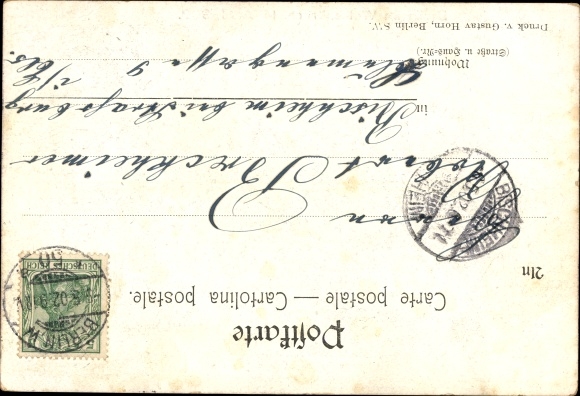 Postkarte
Carte postale — Cartolina postale.
An
Herrn
Robert Breckheimer
in Bischheim bei Straßburg
i/Els.
Wohnung
(Straße u. Haus-Nr.)
9
Druck v. Gustav Horn, Berlin S.W.
DEUTSCHES REICH
5
BERLIN W